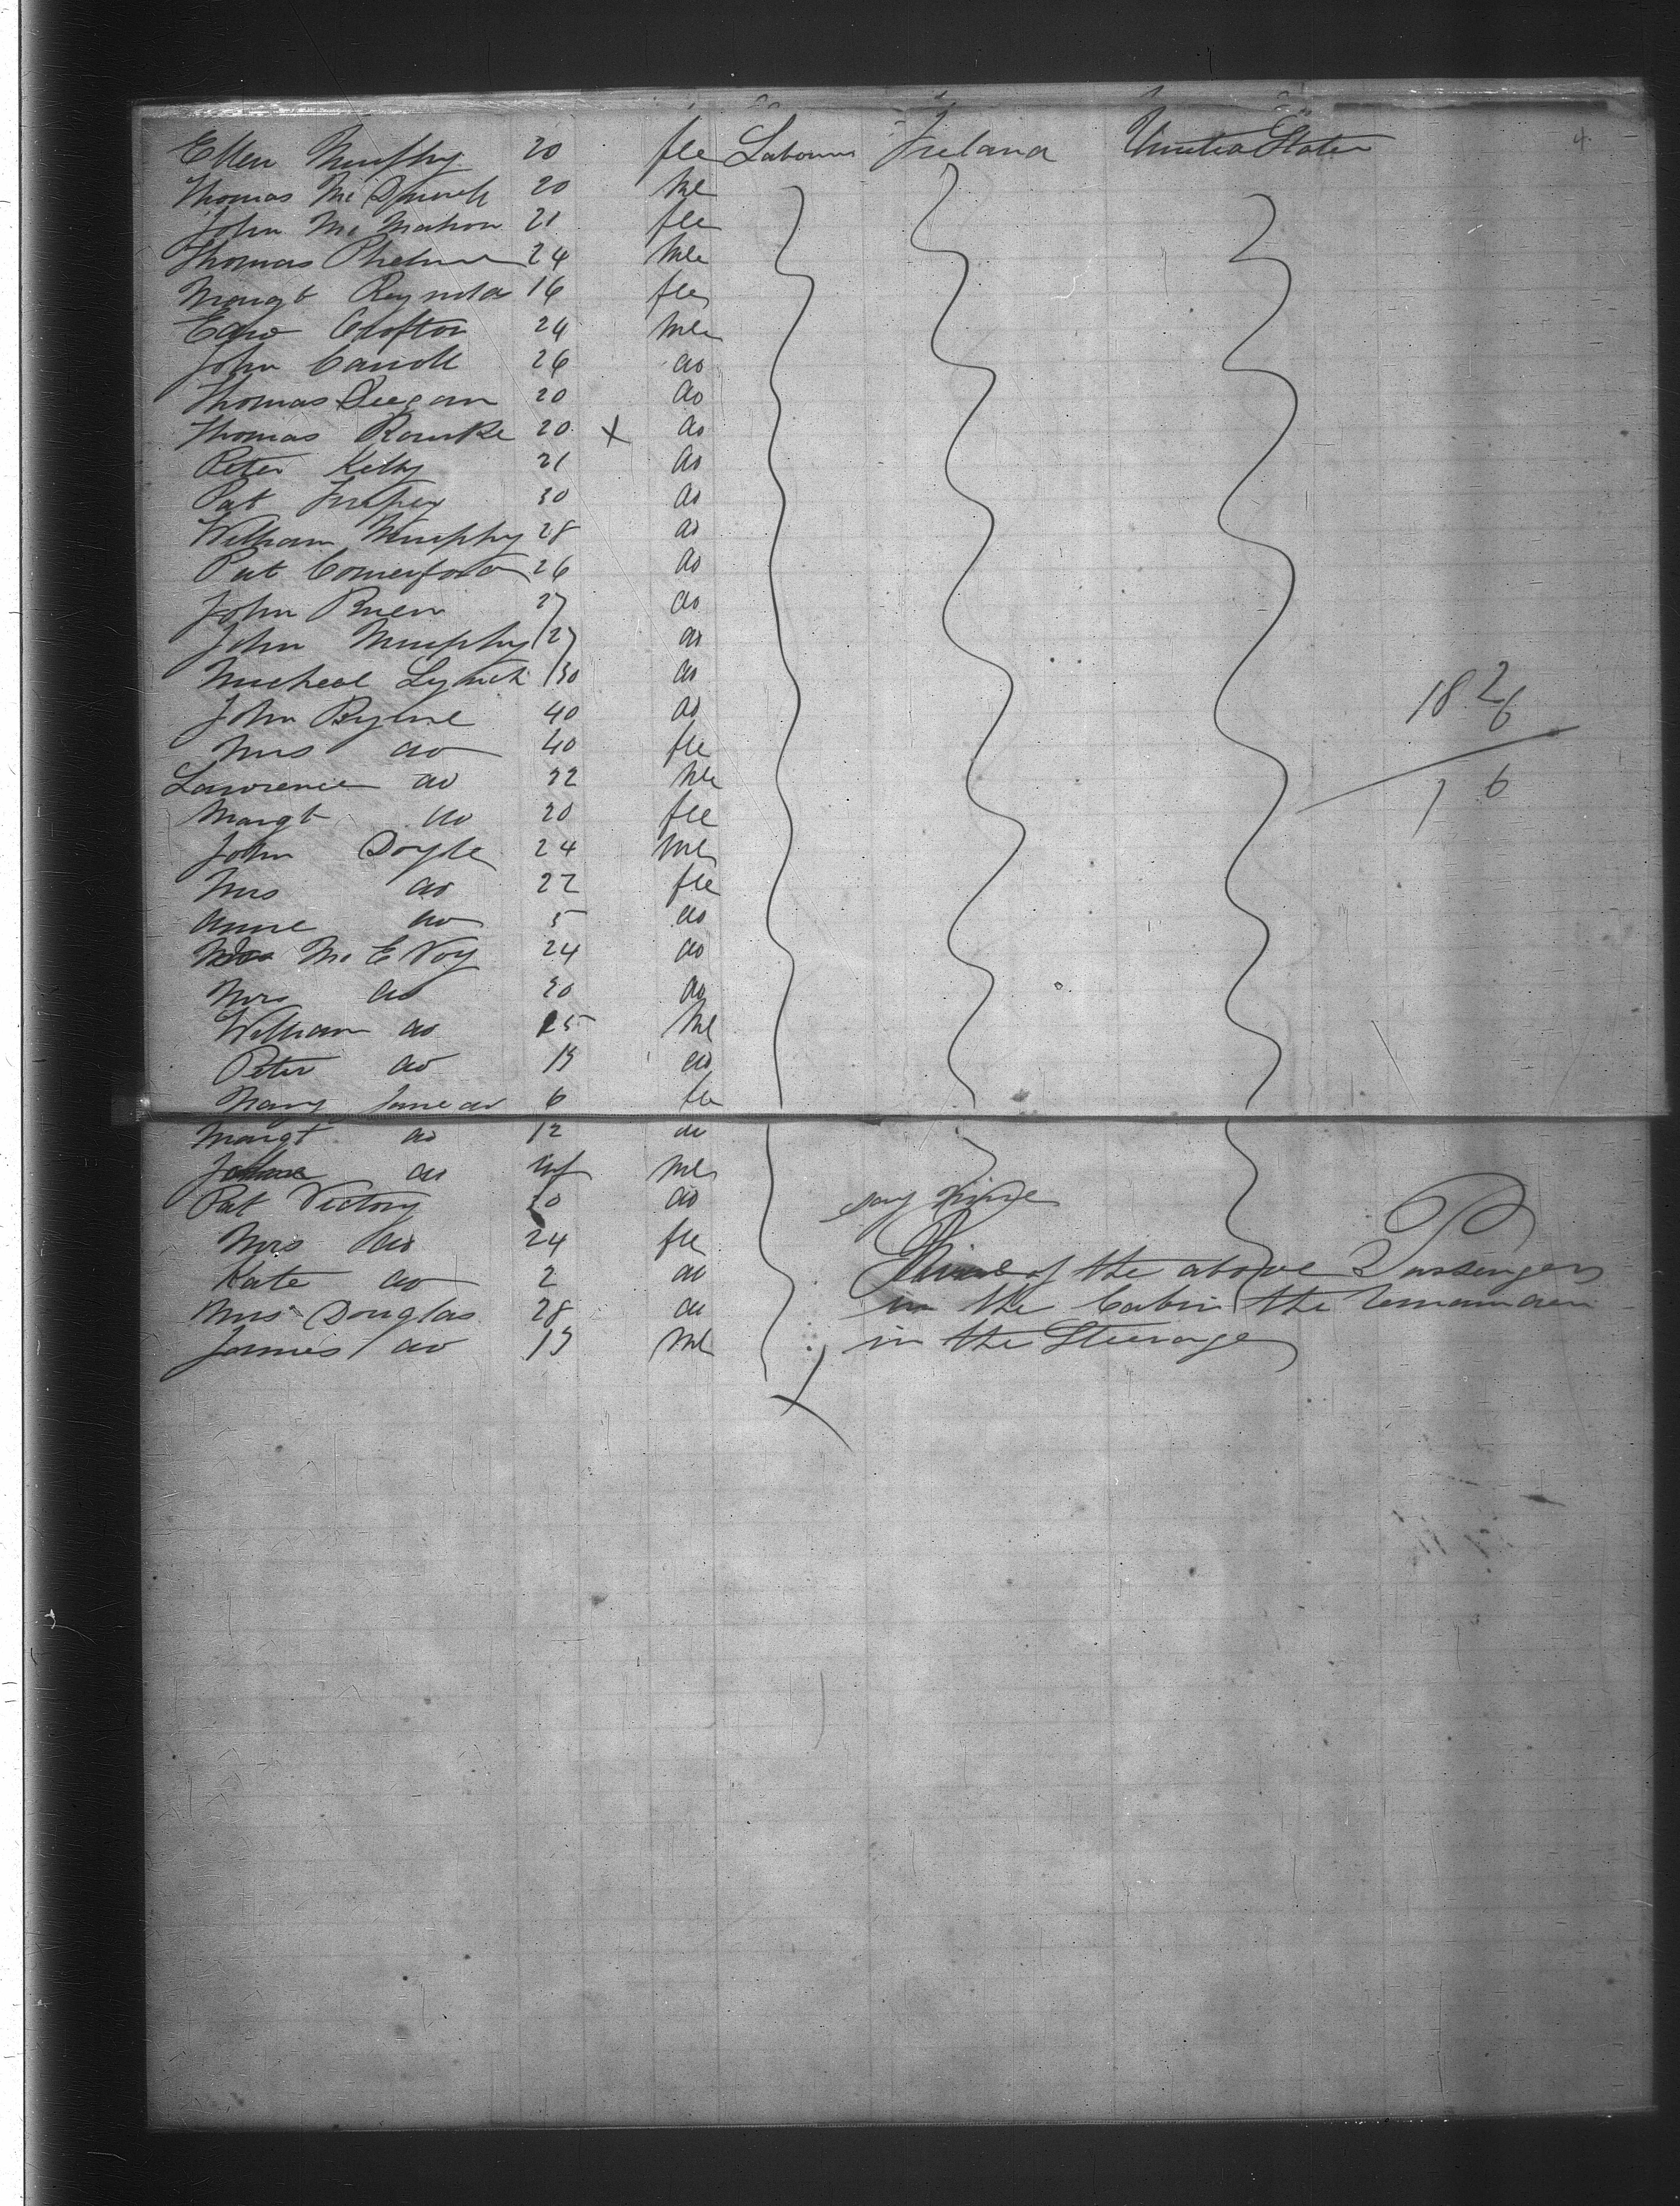 4
Ellen Murphy 20 fle Labourer Ireland United States
Thomas Mc 20 Mle
John Mc Mahon 21 fle
Thomas Phelan 24 Mle
Margt Reynolds 16 fle
Edwd Crofton 24 Mle
John Carroll 26 do
Thomas Deegan 20 do
Thomas Rourke 20 x do
Peter Kelly 21 do
Pat 30 do
William Murphy 28 do
Pat Comerford 26 do
John Brien 27 do
John Murphy 27 do
Micheal Lynch 30 do
John Byrne 40 do
Mrs do 40 fle
Lawrence do 22 Mle
Margt do 20 fle
John Doyle 24 Mle
Mrs do 22 fle
Anne do 5 do
Mc Evoy 24 do
Mrs do do
William do 15 Mle
Peter do 13 do
Mary Jane do 6 fle
Margt do 12 do
do inf Mle
Pat Victory 30 do
Mrs do 24 fle
Kate do 2 do
Mrs Douglas 28 do
James do 13 Mle
18 26
7 6
say Nine
of the above Passengers
in the Cabin the remainder
in the Steerage